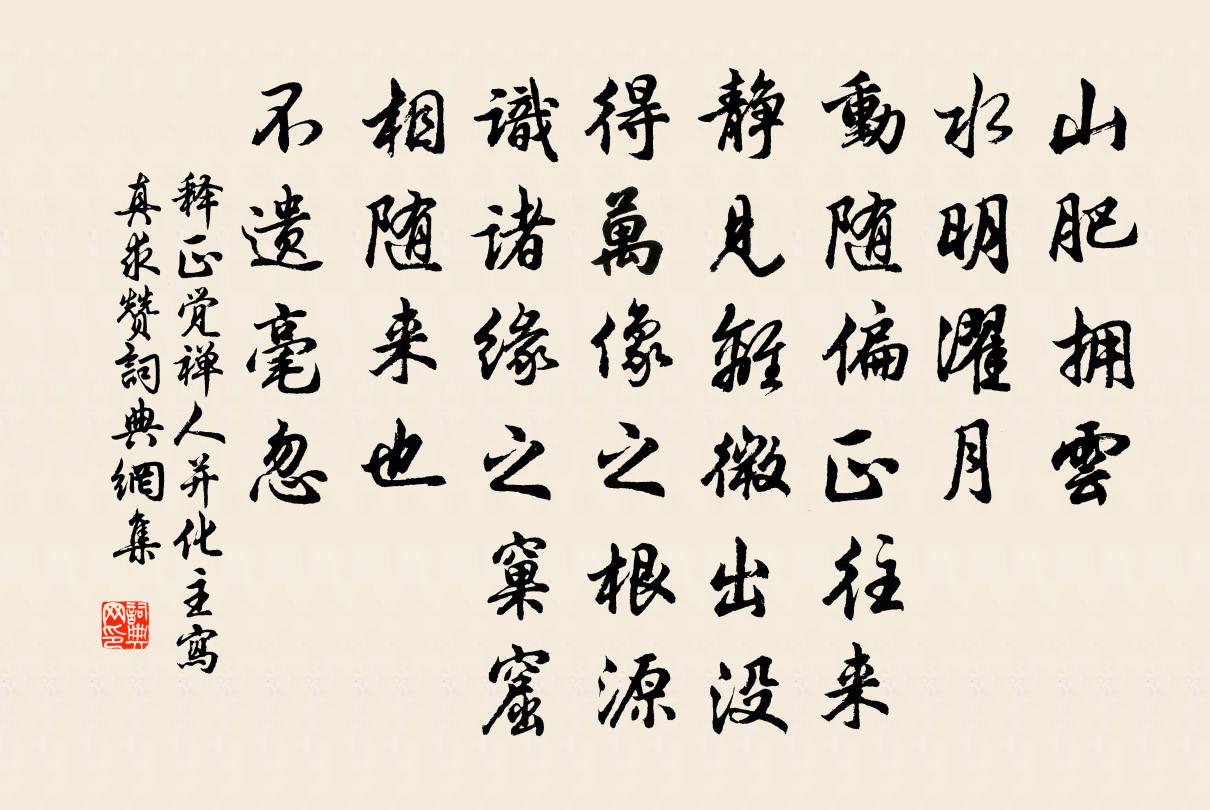 山肥拥雲
水明濯月
動随偏正往来
静見離微出没
得萬像之根源
識诸缘之窠窟
相随来也
不遗毫忽
释正觉禅人并化主寫
真求赞詞典網集
詞典网印